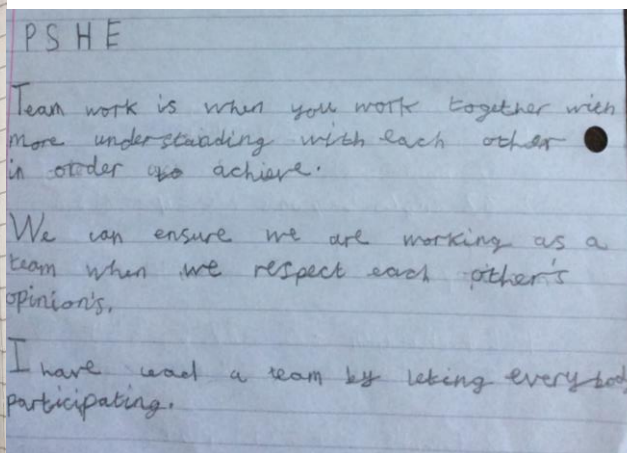 PSHE
Team work is when you work together with
more understanding with each other
in order to achieve.
We can ensure we are working as a
team when we respect each other's
opinion's.
I have lead a team by leting everybod
participating.